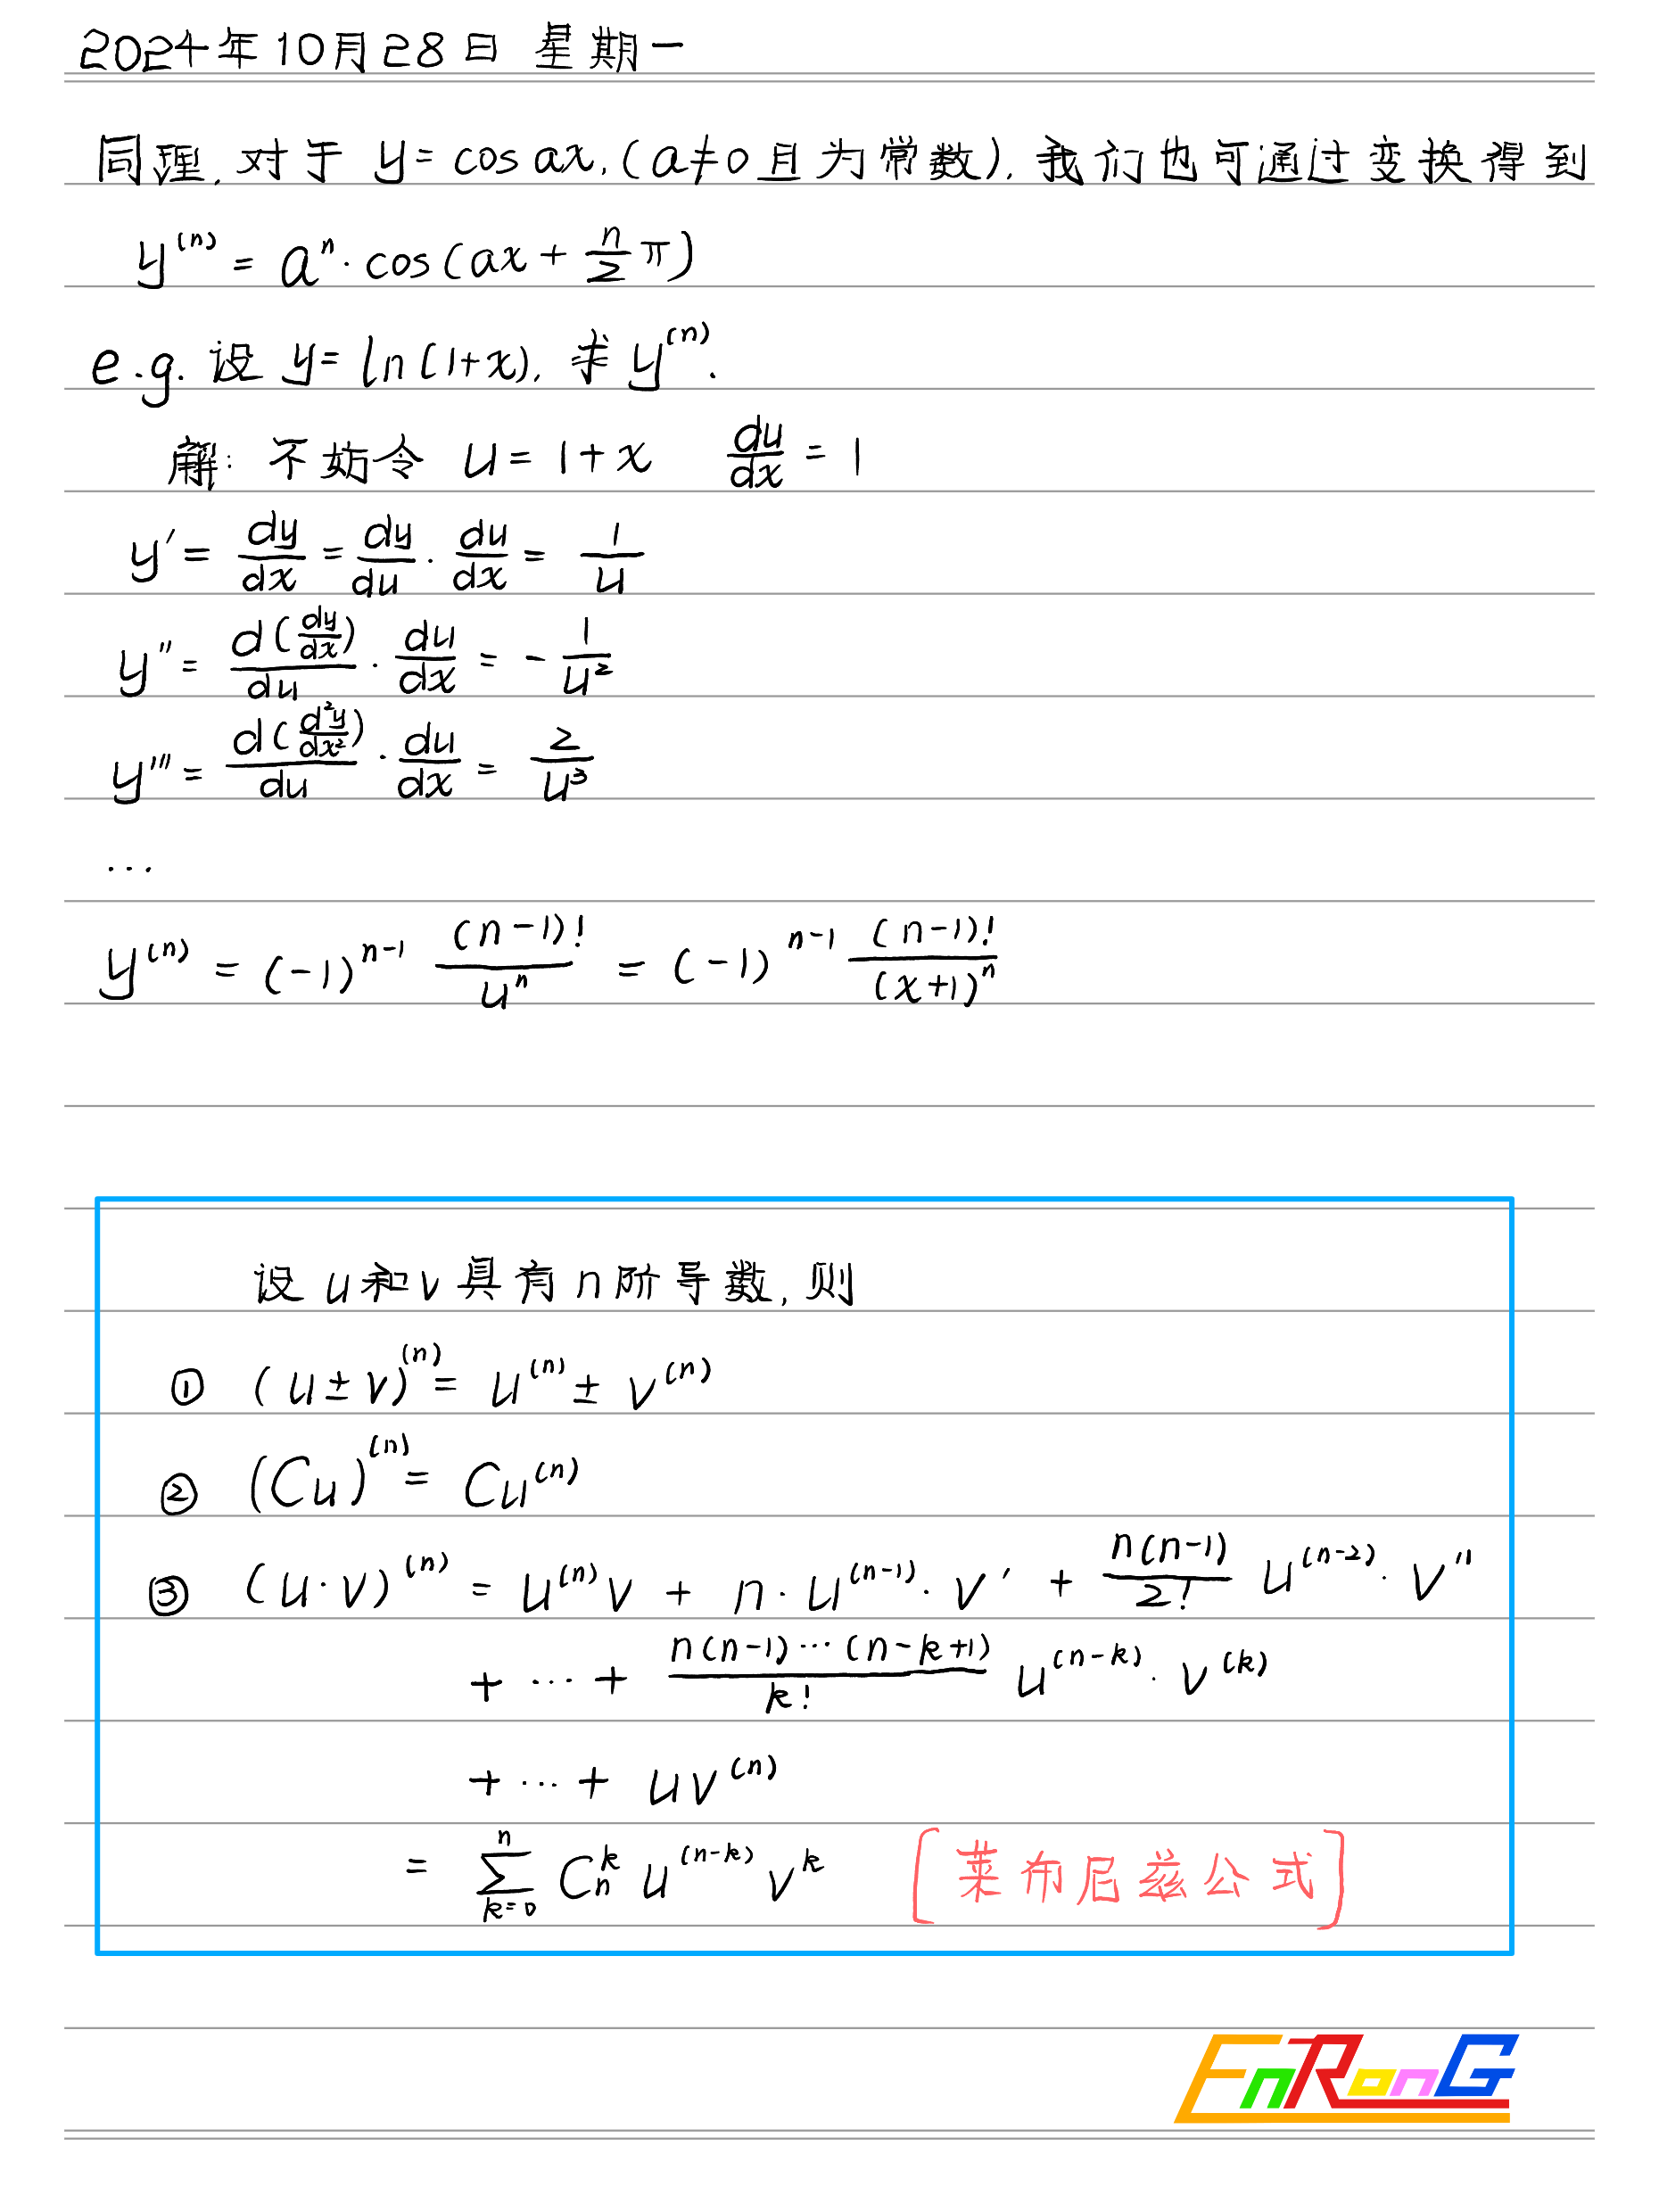 2024年10月28日 星期一
同理, 对于 y = cos ax, (a≠0且为常数), 我们也可通过变换得到
y⁽ⁿ⁾ = aⁿ · cos(ax + n/2 π)
e.g. 设 y = ln(1+x), 求 y⁽ⁿ⁾.
解: 不妨令 u = 1+x  du/dx = 1
y' = dy/dx = dy/du · du/dx = 1/u
y'' = d(dy/dx)/du · du/dx = - 1/u²
y''' = d(d²y/dx²)/du · du/dx = 2/u³
...
y⁽ⁿ⁾ = (-1)ⁿ⁻¹ (n-1)!/uⁿ = (-1)ⁿ⁻¹ (n-1)!/(x+1)ⁿ
设 u和v具有n阶导数, 则
① (u±v)⁽ⁿ⁾ = u⁽ⁿ⁾ ± v⁽ⁿ⁾
② (Cu)⁽ⁿ⁾ = Cu⁽ⁿ⁾
③ (u·v)⁽ⁿ⁾ = u⁽ⁿ⁾v + n·u⁽ⁿ⁻¹⁾·v' + n(n-1)/2! u⁽ⁿ⁻²⁾·v''
+ ··· + n(n-1)···(n-k+1)/k! u⁽ⁿ⁻ᵏ⁾·v⁽ᵏ⁾
+ ··· + uv⁽ⁿ⁾
= ∑_{k=0}^{n} C_n^k u⁽ⁿ⁻ᵏ⁾vᵏ [莱布尼兹公式]
EnRonG